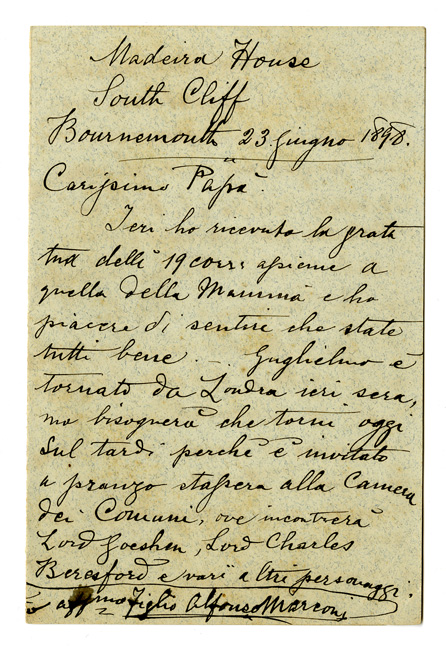 Madeira House
South Cliff
Bournemouth 23 Giugno 1898.
Carissimo Papà.
Ieri ho ricevuto la grata
tua delli 19 corr: assieme a
quella della Mamma e ho
piacere di sentire che state
tutti bene. — Guglielmo è
tornato da Londra ieri sera,
ma bisognerà che torni oggi
sul tardi perchè è invitato
a pranzo stassera alla Camera
dei Comuni, ove incontrerà
Lord Goeshen, Lord Charles
Beresford e varii altri personaggi.
affmo figlio Alfonso Marconi